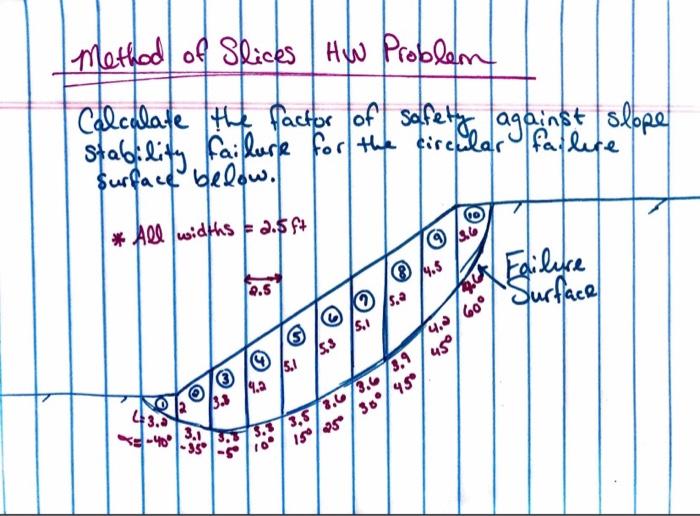 Method of Slices HW Problem
Calculate the factor of safety against slope
stability failure for the circular failure
surface below.
* All widths = 2.5 ft
2.5
① ② ③ ④ ⑤ ⑥ ⑦ ⑧ ⑨ ⑩
2 3.3 4.2 5.1 5.3 5.1 5.2 4.5 3.6
Failure
Surface
L=3.2 3.1 3.3 3.5 3.6 3.6 3.9 4.2
α= -40° -35° -5° 10° 15° 25° 30° 45° 45° 60°